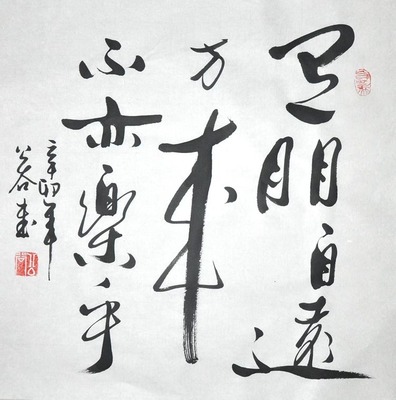 有朋自遠
方来
不亦樂乎
辛卯年